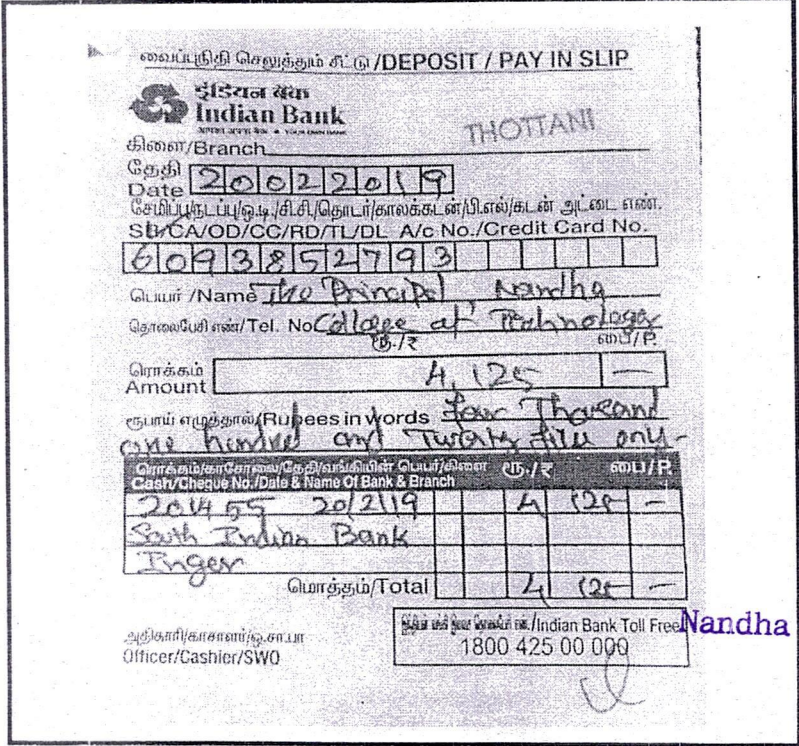 வைப்புநிதி செலுத்தும் சீட்டு/DEPOSIT / PAY IN SLIP
इंडियन बैंक
Indian Bank
YOUR OWN BANK
THOTTANI
கிளை/Branch
தேதி
Date 20022019
சேமிப்பு/நடப்பு/ஓ.டி./சி.சி./தொடர்/காலக்கடன்/பி.எல்/கடன் அட்டை எண்.
SB/CA/OD/CC/RD/TL/DL A/c No./Credit Card No.
6093852793
பெயர் /Name The Principal Nandha
தொலைபேசி எண்/Tel. No College of Technology
ரூ./₹ பை/P.
ரொக்கம்
Amount 4,125 —
ரூபாய் எழுத்தால்/Rupees in words Four Thousand
one hundred and Twenty five only-
ரொக்கம்/காசோலை/தேதி/வங்கியின் பெயர்/கிளை ரூ./₹ பை/P.
Cash/Cheque No./Date & Name Of Bank & Branch
201455 20/2/19 4 125 —
South Indian Bank
Inger
மொத்தம்/Total 4 125 —
/Indian Bank Toll Free Nandha
1800 425 00 000
அதிகாரி/காசாளர்/ஓ.சா.பா
Officer/Cashier/SWO